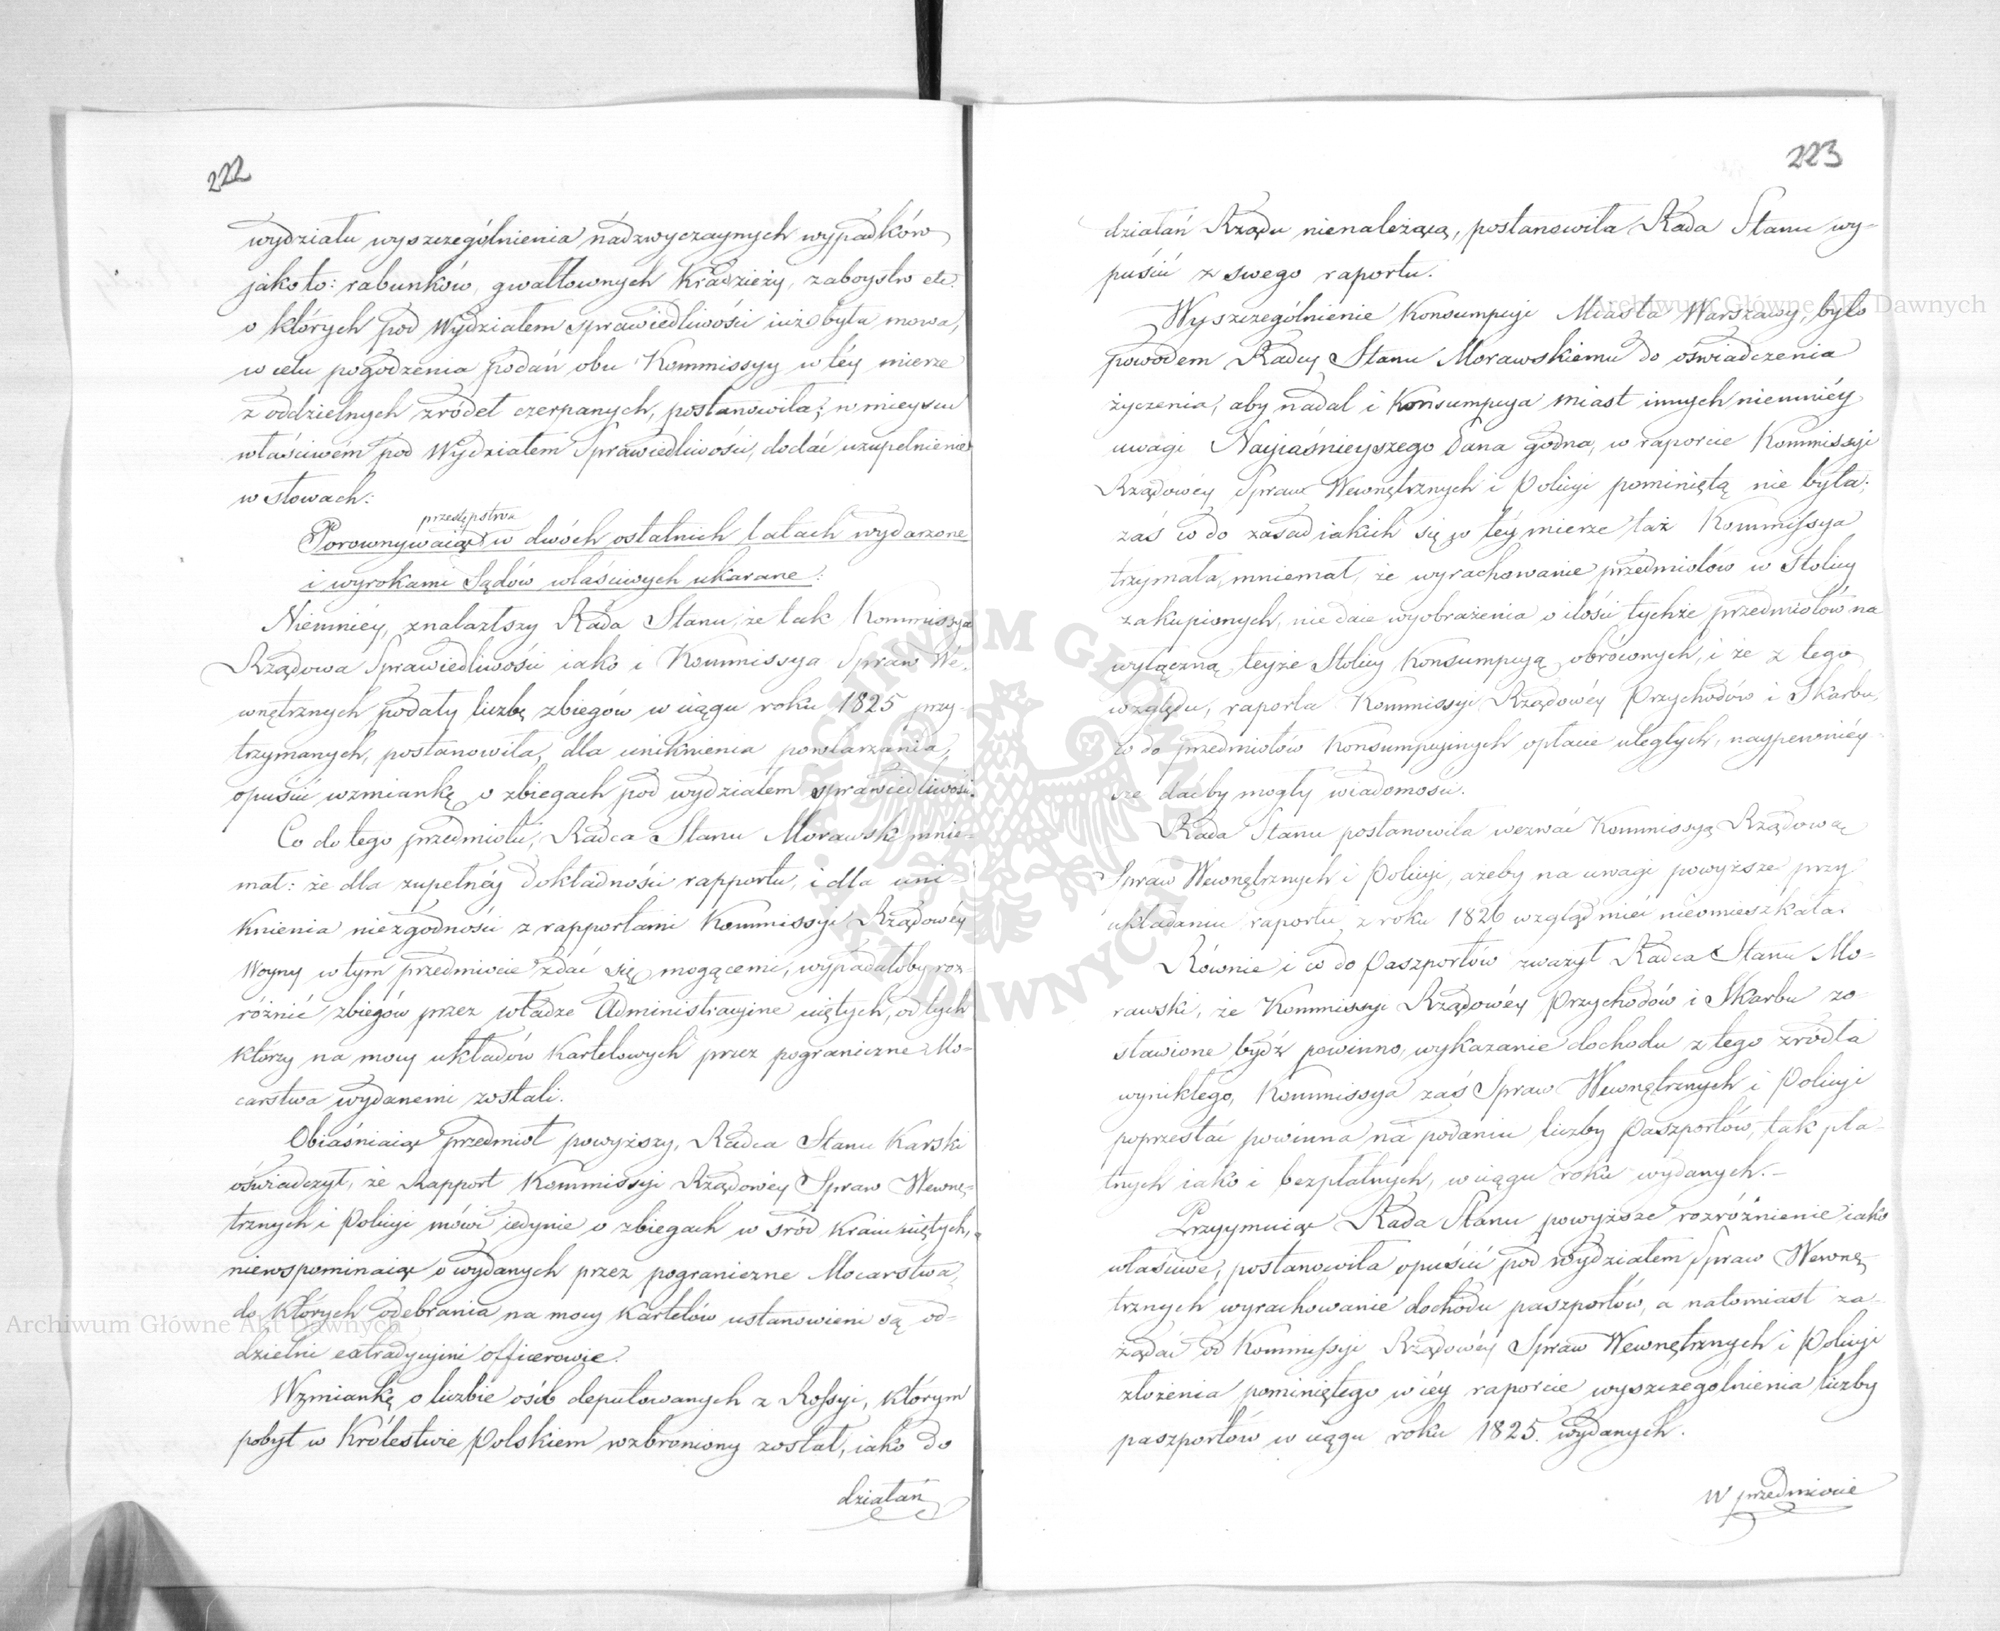 222
wydziału wyszczególnienia nadzwyczaynych wypadków
jako to: rabunków, gwałtownych Kradzieży, zaboystw etc.
o których pod Wydziałem Sprawiedliwości iuż była mowa,
w celu pogodzenia podań obu Kommissyy w téy mierze
z oddzielnych źródeł czerpanych, postanowiła; w mieyscu
właściwém pod Wydziałem Sprawiedliwości, dodać uzupełnienie
w słowach:
przestępstwa
Porownywaiąc w dwóch ostatnich latach wydarzone
i wyrokami Sądów właściwych ukarane:
Niemniéy, znalazłszy Rada Stanu, że tak Kommissya
Rządowa Sprawiedliwości iako i Kommissya Spraw We-
wnętrznych podały liczbę zbiegów w ciągu roku 1825 przy-
trzymanych, postanowiła, dla uniknienia powtarzania,
opuścić wzmiankę o zbiegach pod wydziałem sprawiedliwości.
Co do tego przedmiotu, Radca Stanu Morawski mnie-
mał: że dla zupełnéy dokładności rapportu, i dla uni-
knienia niezgodności z rapportami Kommissyi Rządowéy
Woyny w tym przedmiocie zdać się mogącemi, wypadałoby roz-
różnić zbiegów przez władze Administracyine uiętych, od tych
którzy na mocy układów Kartelowych przez pograniczne Mo-
carstwa wydanemi zostali.
Obiaśniaiąc przedmiot powyższy, Radca Stanu Karski
oświadczył, że Rapport Kommissyi Rządowéy Spraw Wewnę-
trznych i Policyi mówi iedynie o zbiegach w śród Kraiu uiętych,
niewspominaiąc o wydanych przez pograniczne Mocarstwa,
do których odebrania na mocy Kartelów ustanowieni są od-
dzielni extradycyini officerowie.
Wzmiankę o liczbie osób deputowanych z Rossyi, którym
pobyt w Królestwie Polskiem wzbroniony został, iako do
działań
223
działań Rządu nienależącą, postanowiła Rada Stanu wy-
puścić z swego raportu.
Wyszczególnienie Konsumpcyi Miasta Warszawy, było
powodem Radcy Stanu Morawskiemu do oświadczenia
życzenia, aby nadal i Konsumpcya miast innych niemniéy
uwagi Nayiaśnieyszego Pana godna, w raporcie Kommissyi
Rządowéy Spraw Wewnętrznych i Policyi pominiętą nie była;
zaś co do zasad iakich się w téy mierze taż Kommissya
trzymała, mniemał, że wyrachowanie przedmiotów w Stolicy
zakupionych, nie daie wyobrażenia o ilości tychże przedmiotów na
wyłączną teyże Stolicy Konsumpcyą obróconych, i że z tego
względu, raporta Kommissyi Rządowéy Przychodów i Skarbu,
co do przedmiotów Konsumpcyinych opłacie uległych, naypewniéy-
sze daćby mogły wiadomości.
Rada Stanu postanowiła wezwać Kommissyą Rządową
Spraw Wewnętrznych i Policyi, ażeby na uwagi powyższe przy
układaniu raportu z roku 1826 wzgląd mieć nieomieszkała.
Równie i co do Paszportów zważył Radca Stanu Mo-
rawski, że Kommissyi Rządowéy Przychodów i Skarbu zo-
stawione bydź powinno, wykazanie dochodu z tego źródła
wynikłego, Kommissya zaś Spraw Wewnętrznych i Policyi
poprzestać powinna na podaniu liczby Paszportów, tak pła-
tnych iako i bezpłatnych, w ciągu roku wydanych.–
Przyymuiąc Rada Stanu powyższe rozróżnienie iako
właściwe, postanowiła opuścić pod wydziałem Spraw Wewnę-
trznych wyrachowanie dochodu paszportów, a natomiast za-
żądać od Kommissyi Rządowéy Spraw Wewnętrznych i Policyi
złożenia pominiętego w iéy raporcie wyszczególnienia liczby
paszportów w ciągu roku 1825. wydanych.
W przedmiocie
Archiwum Główne Akt Dawnych
Archiwum Główne Akt Dawnych
ARCHIWUM GŁÓWNE AKT DAWNYCH